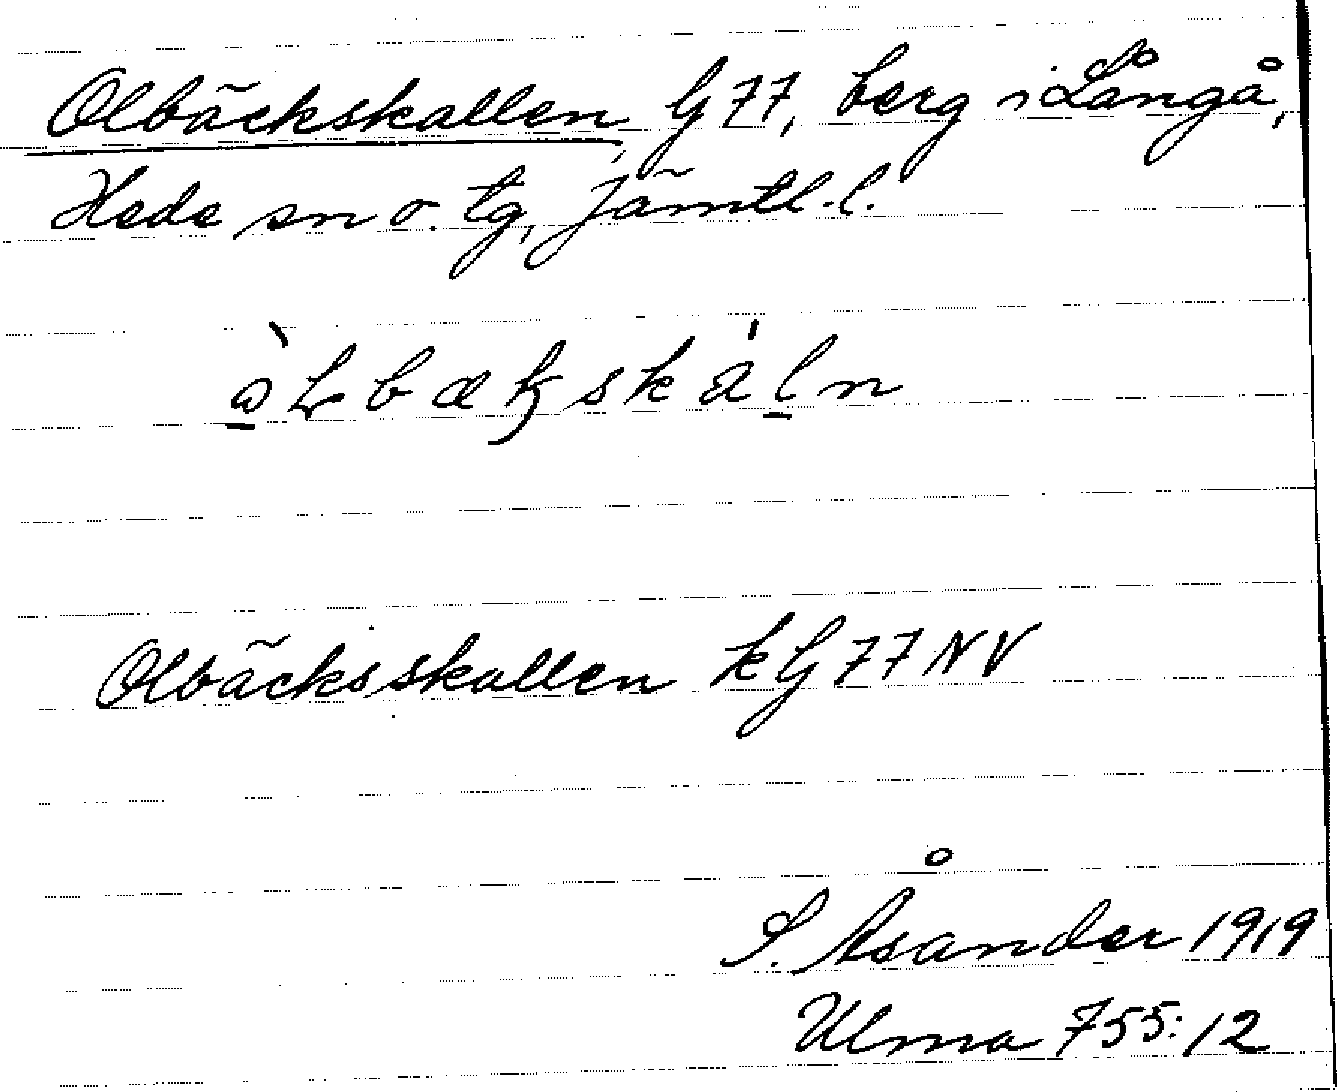 Olbäckskallen, G 77, berg i Långå,
Hede sn o. tg, Jämtl. l.
Olbäcksskallen kG 77 NV
S. Åsander 1919
Ulma 755:12